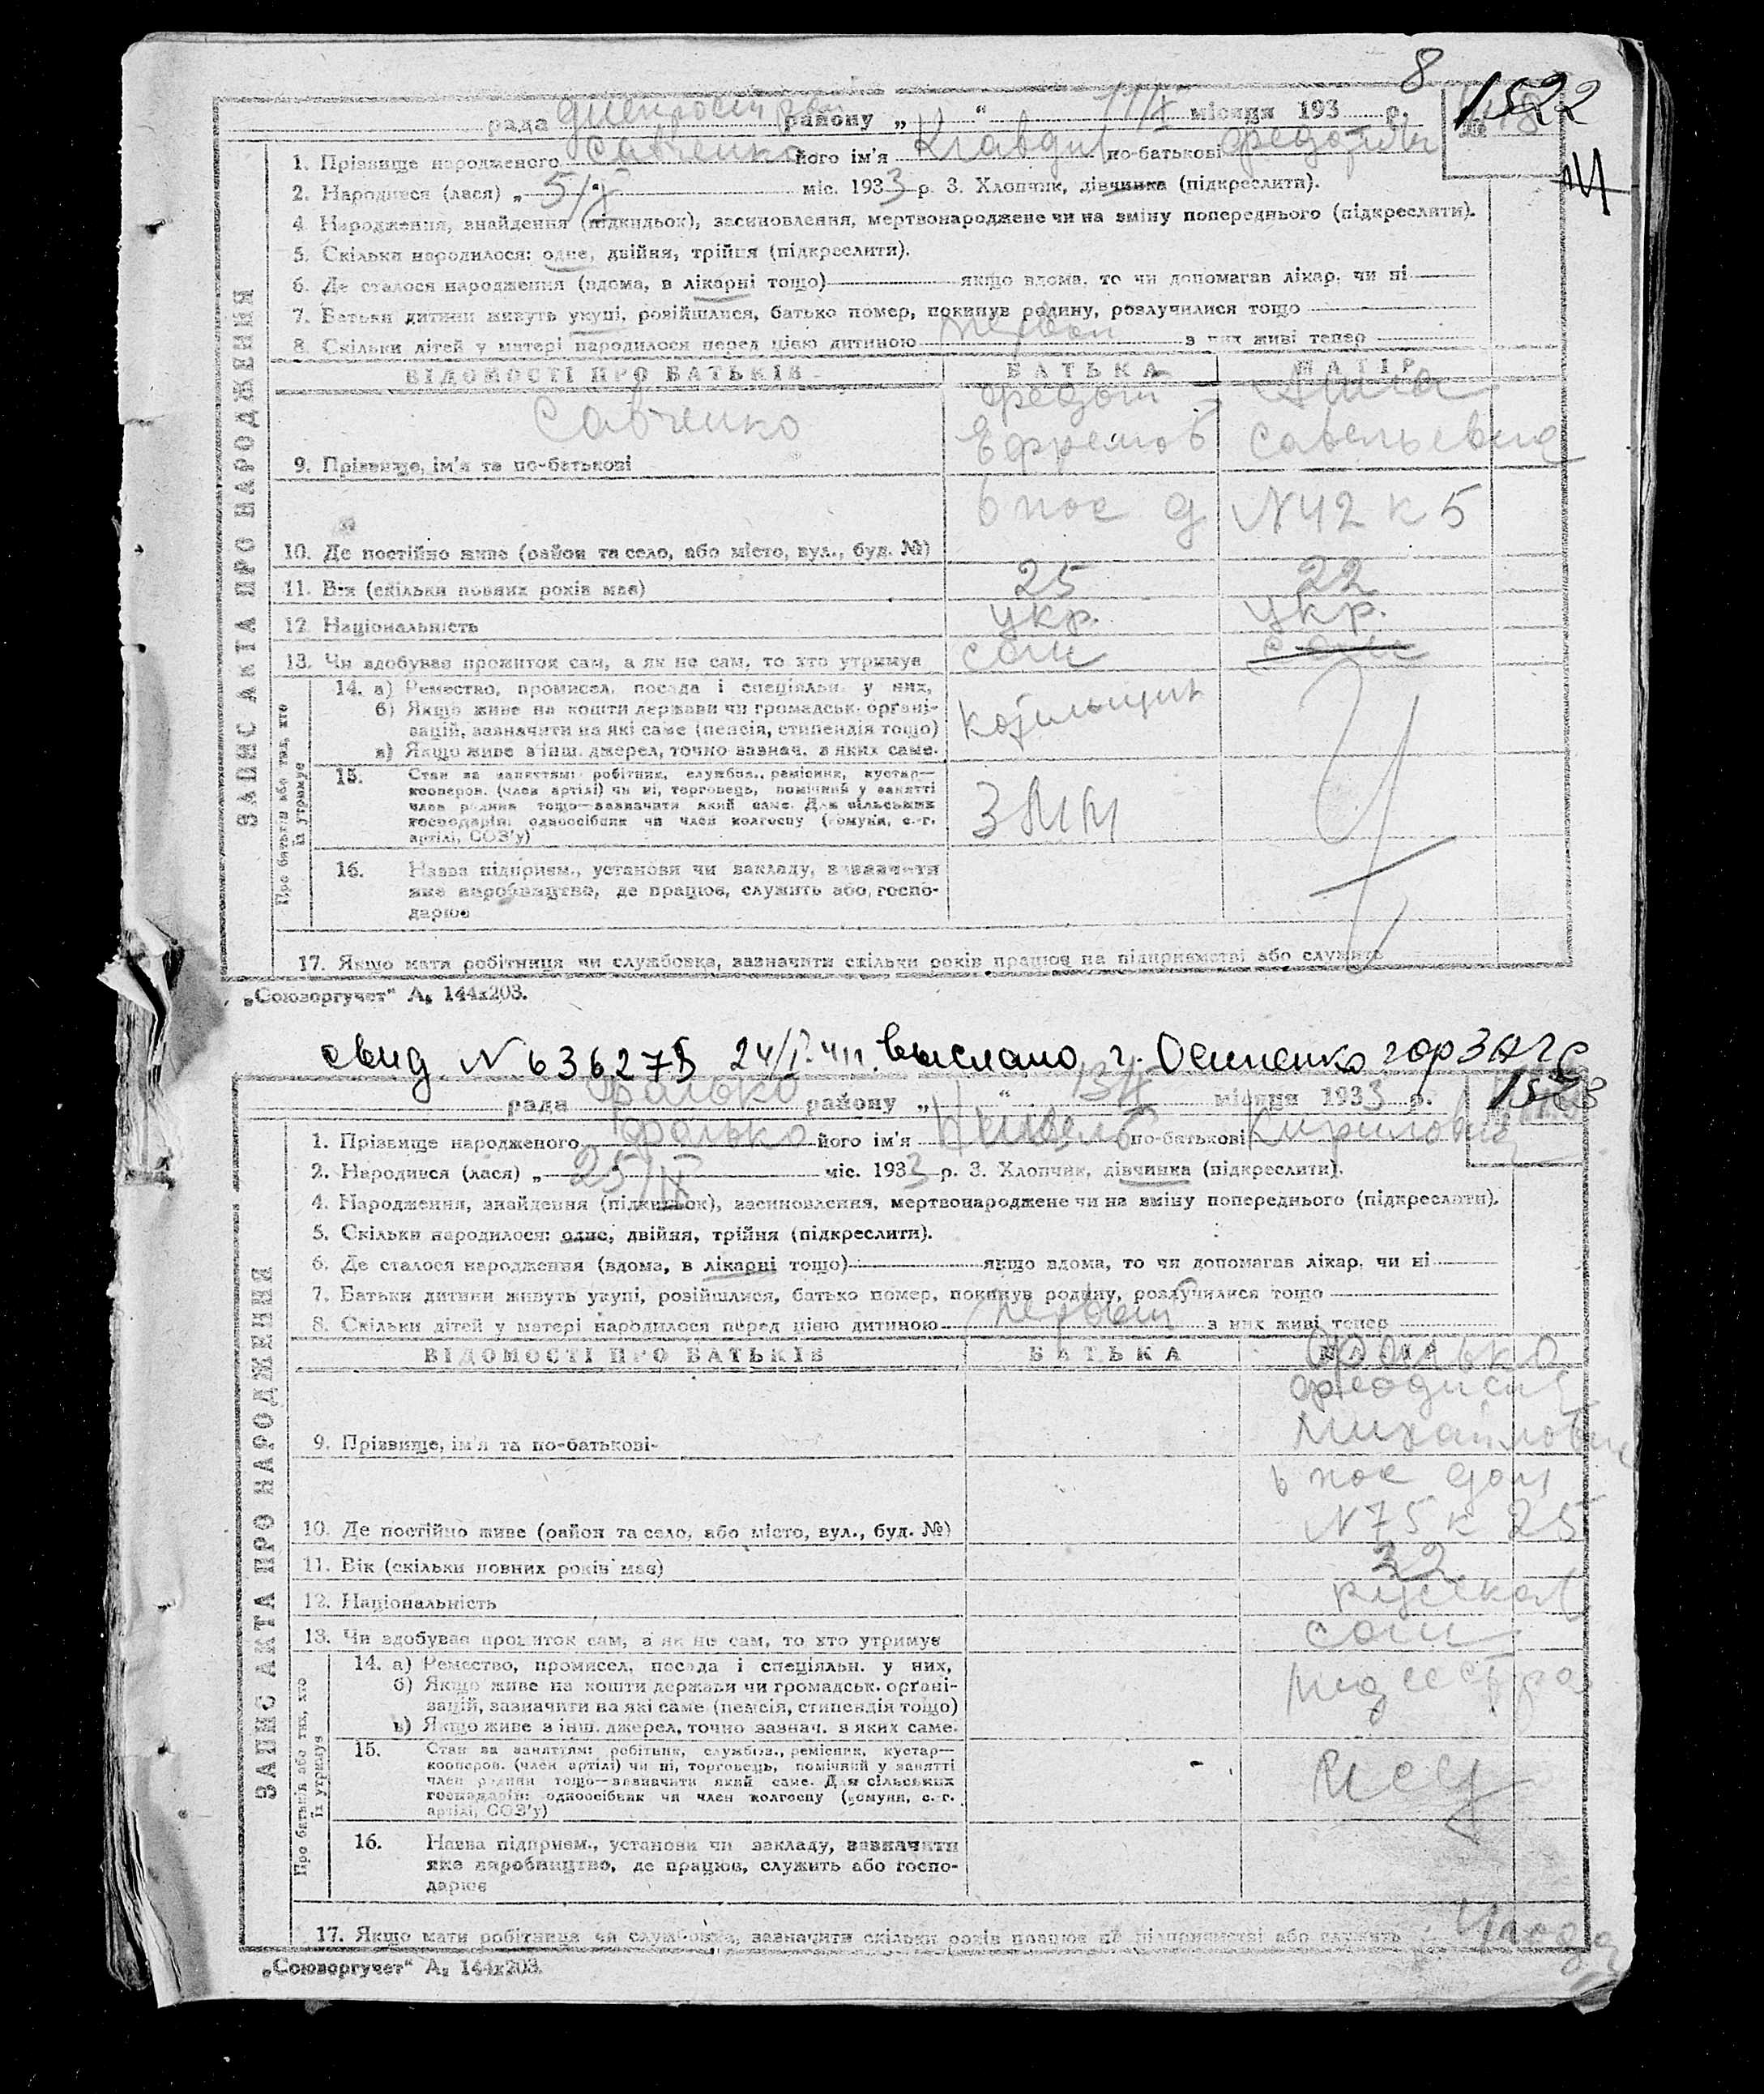 8
рада району „ “ 11/X місяця 193 р. 1522
1. Прізвище народженого Савченко його ім'я Клавдия по-батькові Федотовн
2. Народився (лася) „ 5/X міс. 1933 р. 3. Хлопчик, дівчинка (підкреслити).
4. Народження, знайдення (підкидьок), засиновлення, мертвонароджене чи на зміну попереднього (підкреслити).
5. Скільки народилося: одне, двійня, трійня (підкреслити).
6. Де сталося народження (вдома, в лікарні тощо) якщо вдома, то чи допомагав лікар, чи ні
7. Батьки дитини живуть укупі, розійшлися, батько помер, покинув родину, розлучилися тощо
8. Скільки дітей у матері народилося перед цією дитиною з них живі тепер
ЗАПИС АКТА ПРО НАРОДЖЕННЯ
ВІДОМОСТІ ПРО БАТЬКІВ БАТЬКА МАТІР
Савченко Федот Анна
Ефремов Савельевна
9. Прізвище, ім'я та по-батькові
6 пос д N42 к 5
10. Де постійно живе (район та село, або місто, вул., буд. №)
11. Вік (скільки повних років має) 25 22
12. Національність укр. укр.
13. Чи здобуває прожиток сам, а як не сам, то хто утримує сам сам
Про батьків або тих, хто їх утримує
14. а) Ремество, промисел, посада і спеціяльн. у них,
б) Якщо живе на кошти держави чи громадськ. органі-
зацій, зазначити на які саме (пенсія, стипендія тощо)
в) Якщо живе з інш. джерел, точно зазнач. з яких саме.
15. Стан за заняттям: робітник, службов., ремісник, кустар—
кооперов. (член артілі) чи ні, торговець, помічний у занятті
член родини тощо—зазначити який саме. Для сільських
господарів: одноосібник чи член колгоспу (комуни, с.-г.
артілі, СОЗ'у)
16. Назва підприєм., установи чи закладу, зазначити
яке виробництво, де працює, служить або госпо-
дарює
17. Якщо мати робітниця чи службовка, зазначити скільки років працює на підприємстві або служить
„Союзоргучет“ А₅ 144х203.
свид N 636275 24/I 41г. выслано г. Осипенко горЗАГС
рада Фалько району „ “ місяця 1933 р.
1. Прізвище народженого Фалько його ім'я по-батькові Кириловна
2. Народився (лася) „ 25/IX міс. 1933 р. 3. Хлопчик, дівчинка (підкреслити).
4. Народження, знайдення (підкидьок), засиновлення, мертвонароджене чи на зміну попереднього (підкреслити).
5. Скільки народилося: одне, двійня, трійня (підкреслити).
6. Де сталося народження (вдома, в лікарні тощо) якщо вдома, то чи допомагав лікар, чи ні
7. Батьки дитини живуть укупі, розійшлися, батько помер, покинув родину, розлучилися тощо
8. Скільки дітей у матері народилося перед цією дитиною первый з них живі тепер
ЗАПИС АКТА ПРО НАРОДЖЕННЯ
ВІДОМОСТІ ПРО БАТЬКІВ БАТЬКА МАТІР
Фалько
Феодисия
Михайловна
9. Прізвище, ім'я та по-батькові
6 пос дом
N75 к 25
10. Де постійно живе (район та село, або місто, вул., буд. №)
11. Вік (скільки повних років має) 32
12. Національність руская
13. Чи здобуває прожиток сам, а як не сам, то хто утримує сам
Про батьків або тих, хто їх утримує
14. а) Ремество, промисел, посада і спеціяльн. у них,
б) Якщо живе на кошти держави чи громадськ. органі-
зацій, зазначити на які саме (пенсія, стипендія тощо)
в) Якщо живе з інш. джерел, точно зазнач. з яких саме.
медсестра
15. Стан за заняттям: робітник, службов., ремісник, кустар—
кооперов. (член артілі) чи ні, торговець, помічний у занятті
член родини тощо—зазначити який саме. Для сільських
господарів: одноосібник чи член колгоспу (комуни, с.-г.
артілі, СОЗ'у)
16. Назва підприєм., установи чи закладу, зазначити
яке виробництво, де працює, служить або госпо-
дарює
17. Якщо мати робітниця чи службовка, зазначити скільки років працює на підприємстві або служить
„Союзоргучет“ А₅ 144х203.